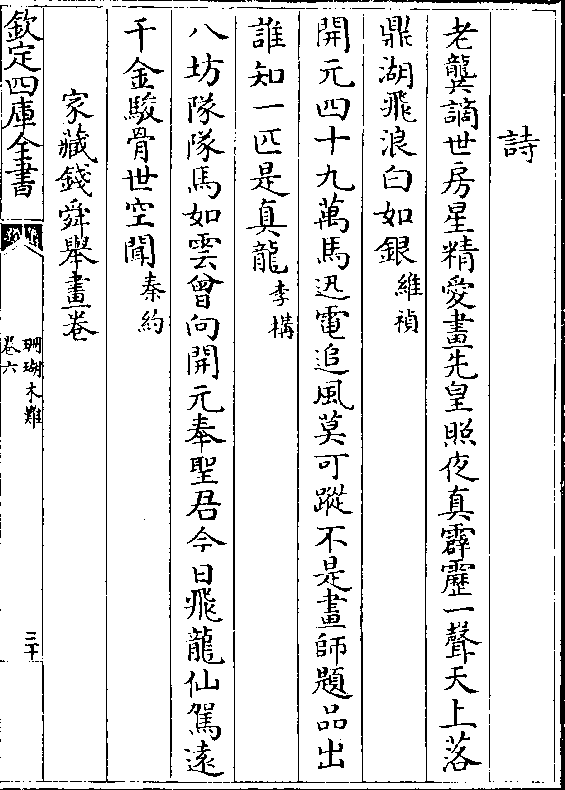 詩
老龔謫世房星精愛畫先皇照夜真霹靂一聲天上落
鼎湖飛浪白如銀維禎
開元四十九萬馬迅電追風莫可蹤不是畫師題品出
誰知一匹是真龍李構
八坊隊隊馬如雲曾向開元奉聖君今日飛龍仙駕遠
千金駿骨世空聞秦約
家藏錢舜舉畫卷
欽定四庫全書
珊瑚木難
卷六
三十